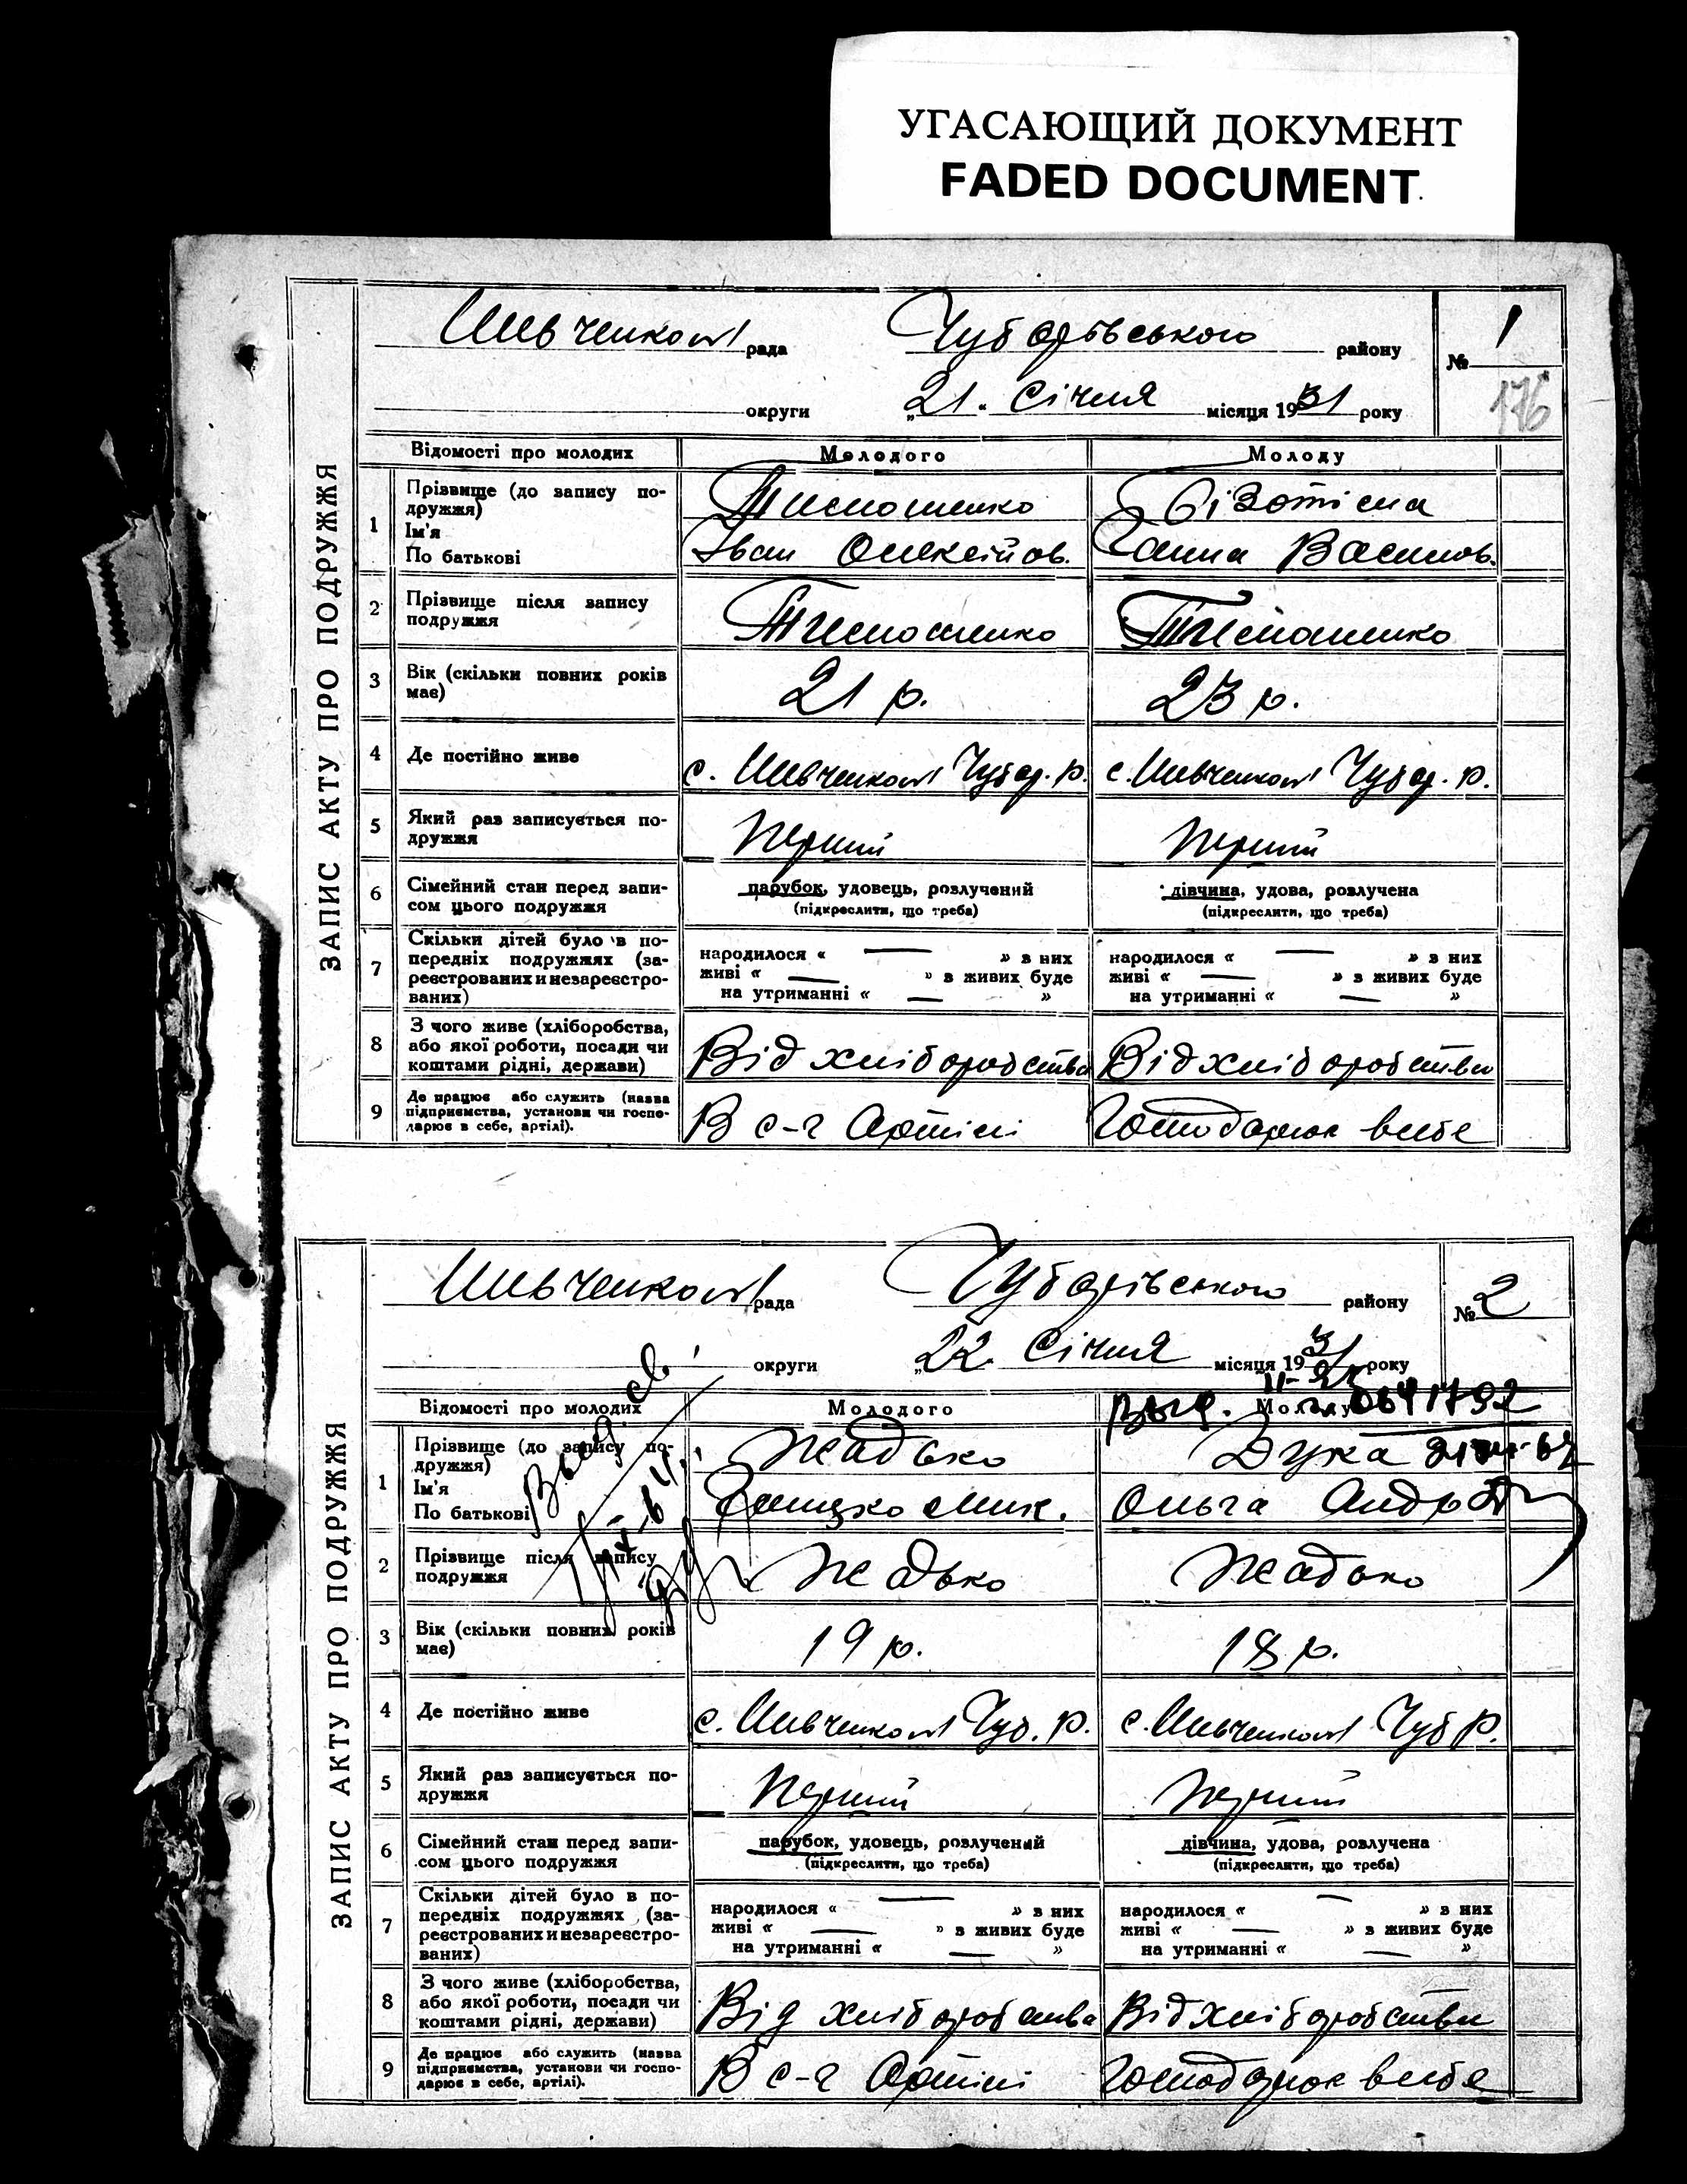 УГАСАЮЩИЙ ДОКУМЕНТ
FADED DOCUMENT.
ЗАПИС АКТУ ПРО ПОДРУЖЖЯ
рада Чубарівського району № 1
округи „21" Січня місяця 1931 року 176
Відомості про молодих Молодого Молоду
1 Прізвище (до запису по-
дружжя)
Ім'я Іван Олексійов. Ганна Васильов.
По батькові
2 Прізвище після запису
подружжя
3 Вік (скільки повних років
має) 21 р. 23 р.
4 Де постійно живе
5 Який раз записується по-
дружжя Перший Перший
6 Сімейний стан перед запи-
сом цього подружжя
парубок, удовець, розлучений
(підкреслити, що треба)
дівчина, удова, розлучена
(підкреслити, що треба)
7 Скільки дітей було в по-
передніх подружжях (за-
реєстрованих и незареєстро-
ваних)
народилося « — » з них
живі « — » з живих буде
на утриманні « — »
народилося « — » з них
живі « — » з живих буде
на утриманні « — »
8 З чого живе (хліборобства,
або якої роботи, посади чи
коштами рідні, держави)
Від хліборобства Від хліборобства
9 Де працює або служить (назва
підприємства, установи чи госпо-
дарює в себе, артілі).
В с-г Артілі Господарює в себе
ЗАПИС АКТУ ПРО ПОДРУЖЖЯ
рада Чубарівського району № 2
округи „22. Січня місяця 1931 року
Відомості про молодих Молодого Молоду
1 Прізвище (до запису по-
дружжя) Жадько Дука
Ім'я Ольга
По батькові
2 Прізвище після запису
подружжя Жадько Жадько
3 Вік (скільки повних років
має) 19 р. 18 р.
4 Де постійно живе
5 Який раз записується по-
дружжя Перший Перший
6 Сімейний стан перед запи-
сом цього подружжя
парубок, удовець, розлучений
(підкреслити, що треба)
дівчина, удова, розлучена
(підкреслити, що треба)
7 Скільки дітей було в по-
передніх подружжях (за-
реєстрованих и незареєстро-
ваних)
народилося « — » з них
живі « — » з живих буде
на утриманні « — »
народилося « — » з них
живі « — » з живих буде
на утриманні « — »
8 З чого живе (хліборобства,
або якої роботи, посади чи
коштами рідні, держави)
Від хліборобства Від хліборобства
9 Де працює або служить (назва
підприємства, установи чи госпо-
дарює в себе, артілі).
В с-г Артілі Господарює в себе